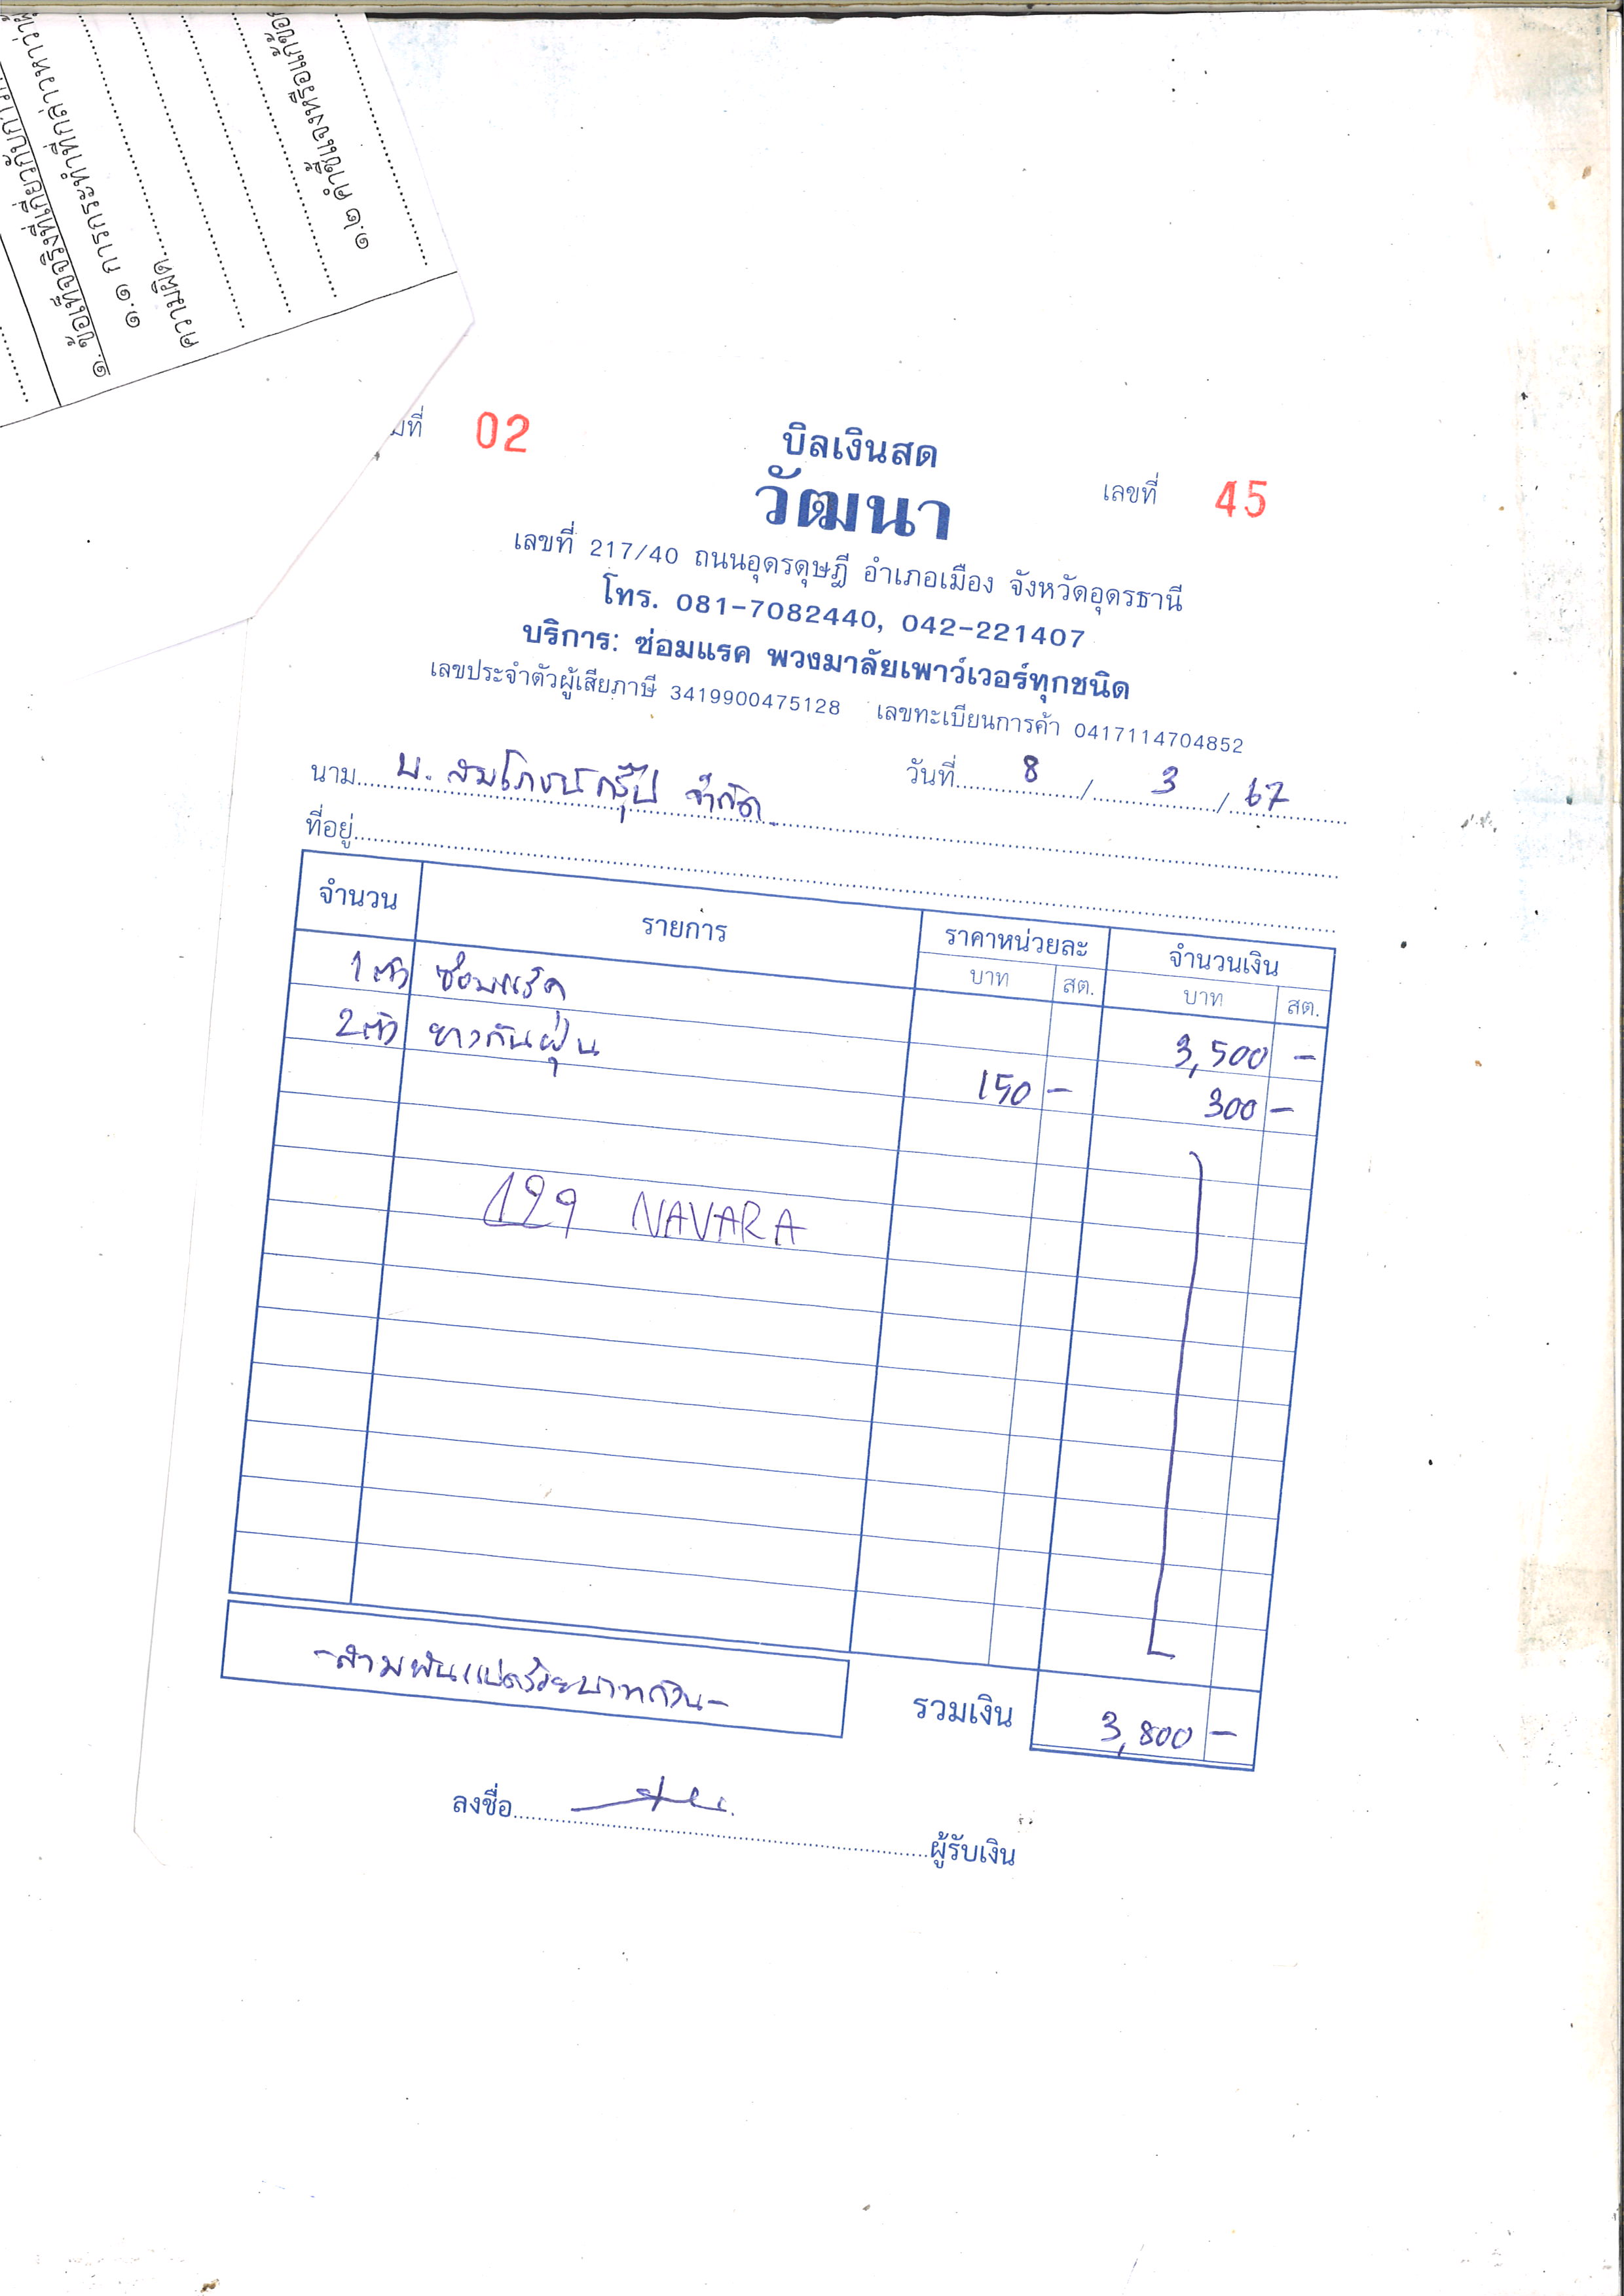 ๑. ข้อเท็จจริงที่เกี่ยวกับการ
๑.๑ การกระทำที่กล่าวหาว่า
ความผิด
๑.๒ คำชี้แจงหรือแก้ข้อ
มที่ 02
บิลเงินสด
วัฒนา
เลขที่ 45
เลขที่ 217/40 ถนนอุดรดุษฎี อำเภอเมือง จังหวัดอุดรธานี
โทร. 081-7082440, 042-221407
บริการ: ซ่อมแรค พวงมาลัยเพาว์เวอร์ทุกชนิด
เลขประจำตัวผู้เสียภาษี 3419900475128 เลขทะเบียนการค้า 0417114704852
นาม บ. สมโภชน์กรุ๊ป จำกัด วันที่ 8 / 3 / 67
ที่อยู่
จำนวน รายการ ราคาหน่วยละ จำนวนเงิน
บาท สต. บาท สต.
1 ตัว ซ่อมแร็ค 3,500 -
2 ตัว ยางกันฝุ่น 150 - 300 -
129 NAVARA
-สามพันแปดร้อยบาทถ้วน- รวมเงิน 3,800 -
ลงชื่อ ผู้รับเงิน